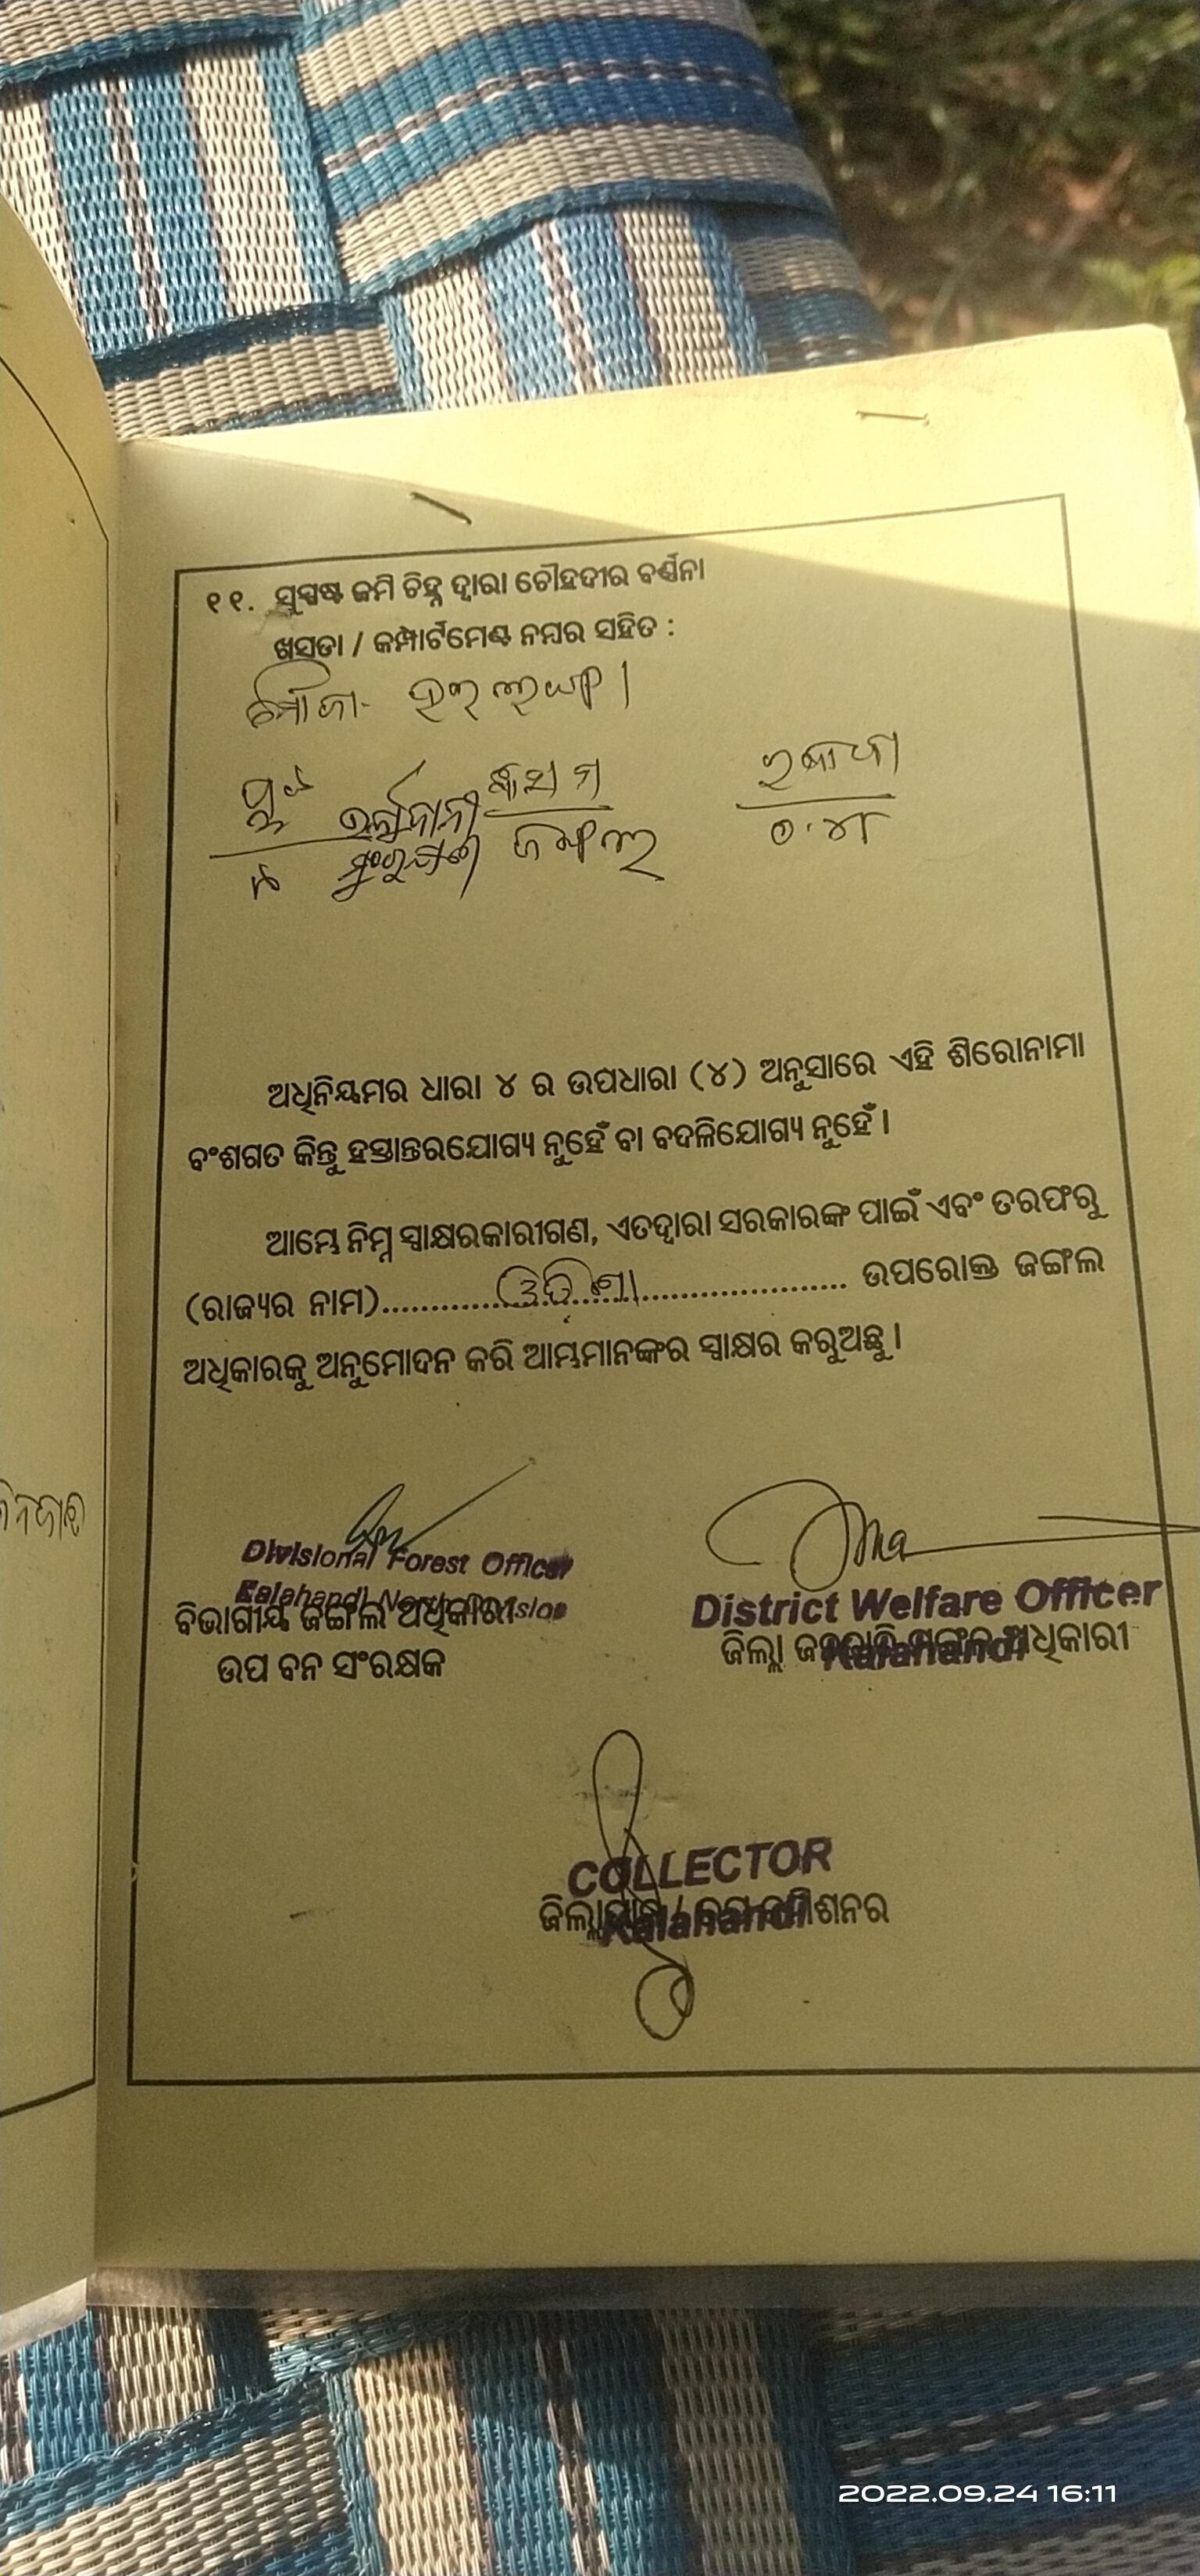 ୧୧. ସୁସ୍ପଷ୍ଟ ଜମି ଚିହ୍ନ ଦ୍ୱାରା ଚୌହଦୀର ବର୍ଣ୍ଣନା
ଖସଡା / କମ୍ପାର୍ଟମେଣ୍ଟ ନମ୍ବର ସହିତ :
ମୌଜା-
ପ୍ଲଟ କିସମ ରକବା
ଜଙ୍ଗଲ ୦.୪୮
ଅଧିନିୟମର ଧାରା ୪ ର ଉପଧାରା (୪) ଅନୁସାରେ ଏହି ଶିରୋନାମା
ବଂଶଗତ କିନ୍ତୁ ହସ୍ତାନ୍ତରଯୋଗ୍ୟ ନୁହେଁ ବା ବଦଳିଯୋଗ୍ୟ ନୁହେଁ ।
ଆମ୍ଭେ ନିମ୍ନ ସ୍ୱାକ୍ଷରକାରୀଗଣ, ଏତଦ୍ୱାରା ସରକାରଙ୍କ ପାଇଁ ଏବଂ ତରଫରୁ
(ରାଜ୍ୟର ନାମ)............ଓଡିଶା.................... ଉପରୋକ୍ତ ଜଙ୍ଗଲ
ଅଧିକାରକୁ ଅନୁମୋଦନ କରି ଆମ୍ଭମାନଙ୍କର ସ୍ୱାକ୍ଷର କରୁଅଛୁ ।
Divisional Forest Officer
Kalahandi North Division
ବିଭାଗୀୟ ଜଙ୍ଗଲ ଅଧିକାରୀ
ଉପ ବନ ସଂରକ୍ଷକ
District Welfare Officer
Kalahandi
ଜିଲ୍ଲା ଅଧିକାରୀ
COLLECTOR
Kalahandi
2022.09.24 16:11